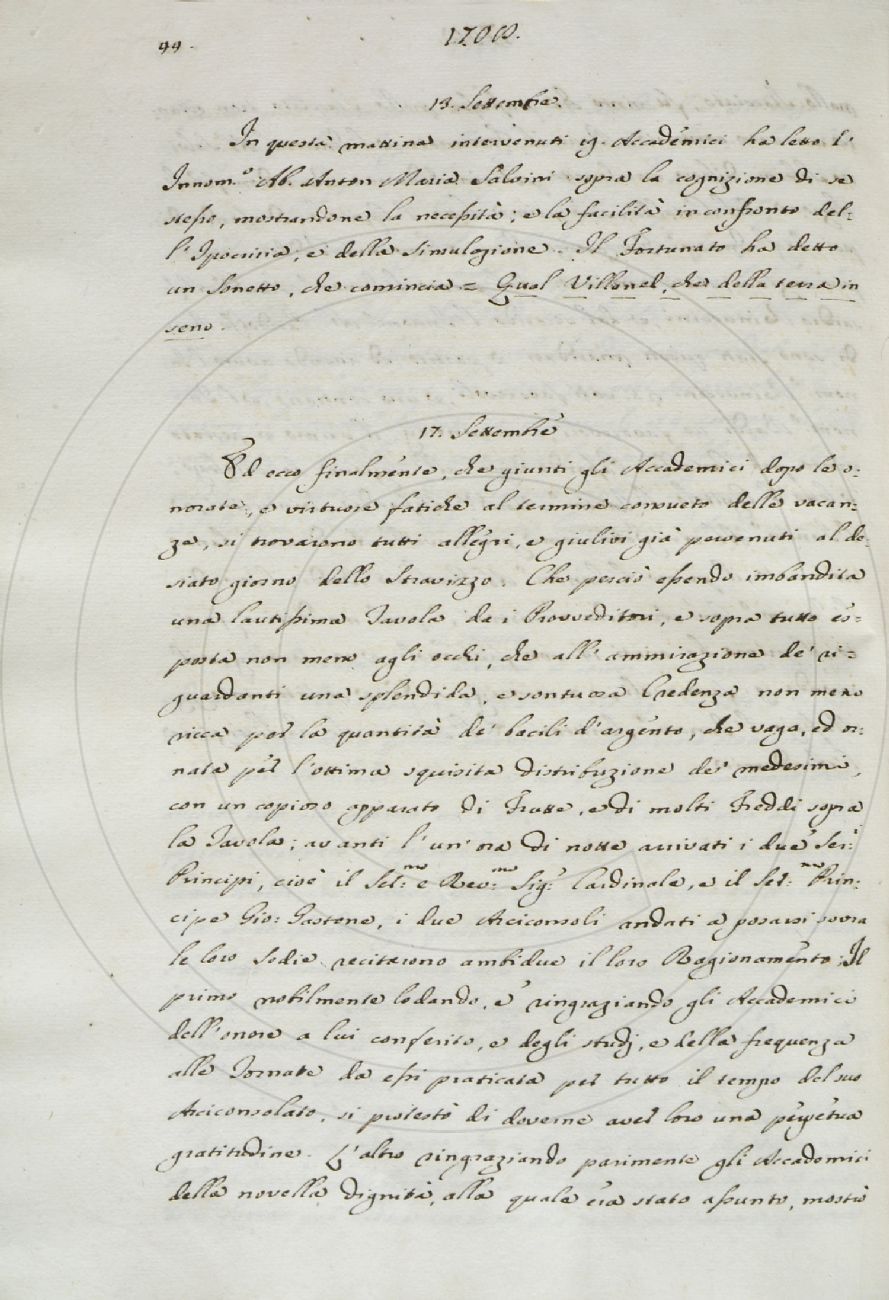 99.
1708.
13. Settembre.
In questa mattina intervenuti 19. Accademici ha letto l'
Innom.º Ab. Anton Maria Salvini sopra la cognizione di se
stesso, mostrandone la necessità; e la facilità in confronto del-
l'Ipocrisia, e della Simulazione. Il Fortunato ha detto
un Sonetto, che comincia = Qual Villanel, che della terra in
seno.
17. Settembre
Ed ecco finalmente, che giunti gli Accademici dopo le o-
norate, e virtuose fatiche al termine consueto delle vacan-
ze, si trovarono tutti allegri, e giulivi già pervenuti al de-
siato giorno dello Stravizzo. Che perciò essendo imbandita
una lautissima Tavola da i Provveditori, e sopra tutto es-
posta non meno agli occhi, che all'ammirazione de' ri-
guardanti una splendida, e sontuosa Credenza non meno
ricca per la quantità de' bacili d'argento, che vaga, ed or-
nata per l'ottima squisita distribuzione de' medesimi,
con un copioso apparato di Frutte, e di molti Freddi sopra
la Tavola; avanti l'un'ora di notte arrivati i due Ser:i
Principi, cioè il Ser:mo e Rev:mo Sig.r Cardinale, e il Ser:mo Prin-
cipe Gio: Gastone, i due Arciconsoli andati a posarsi sovra
le loro Sedie recitarono ambidue il loro Ragionamento: Il
primo nobilmente lodando, e ringraziando gli Accademici
dell'onore a lui conferito, e degli studj, e della frequenza
alle Tornate da essi praticata per tutto il tempo del suo
Arciconsolato, si protestò di doverne aver loro una perpetua
gratitudine. L'altro ringraziando parimente gli Accademici
della novella dignità, alla quale era stato assunto, mostrò